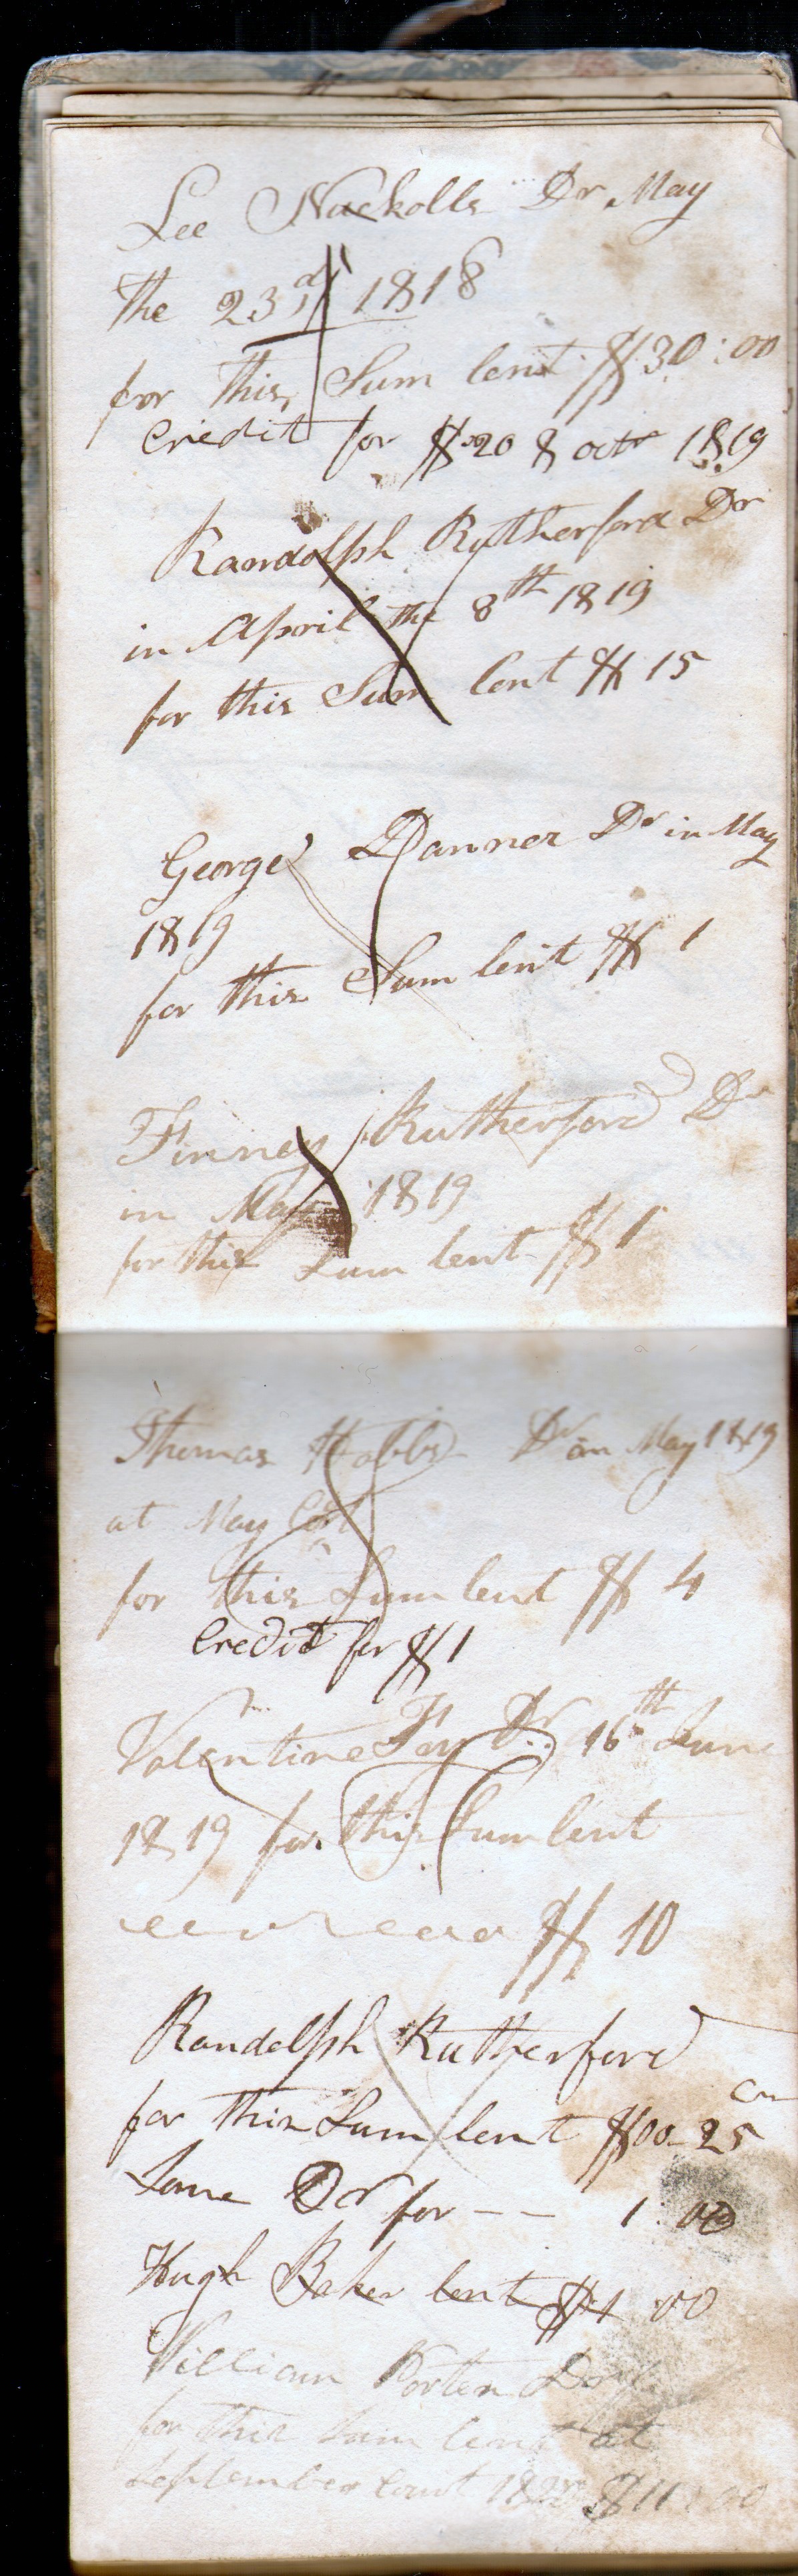 Lee Nuckolls Dr May
the 23rd 1818
for this Sum lent $30:00
Credit for $20 8 octr 1819
Randolph Rutherford Dr
in April the 8th 1819
for this Sum lent $ 15
George Danner Dr in May
1819
for this Sum lent $ 1
Finney Rutherford Dr
in May 1819
for this Sum lent $ 1
Thomas Hobbs Dr in May 1819
at May Cort
for this Sum lent $ 4
Credit for $ 1
Valentine Fry Dr 16th June
1819 for this Sum lent
$ 10
Randolph Rutherford
for this Sum lent $00-25
Same Dr for -- 1:00
Hugh Baker lent $1 00
William Porter Dr
for this Sum lent at
September Court $11:00